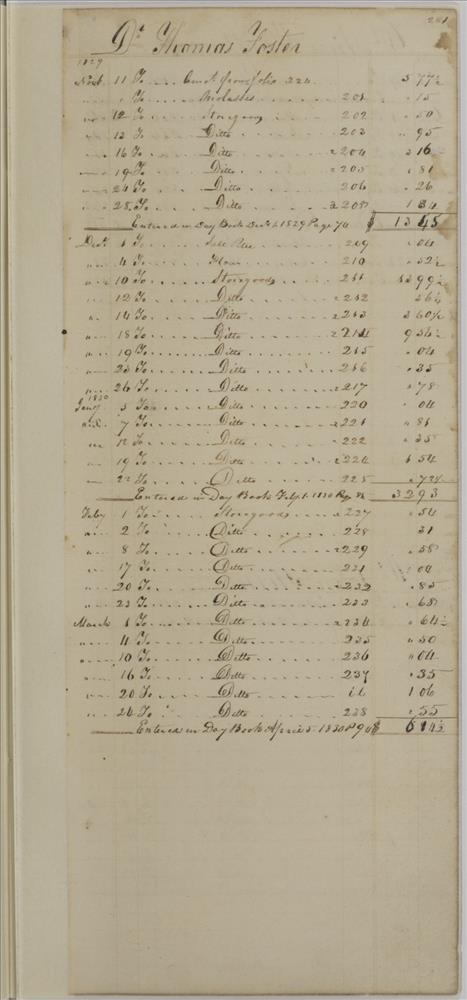 281
Dr Thomas Foster
1829
Novb 11 To Amot from folio 224 5 77½
" " To Molasses 201 " 15
" 12 To Storegoods 202 " 50
" 13 To Ditto 203 " 95
" 16 To Ditto 204 2 16
" 19 To Ditto 205 " 81
" 24 To Ditto 206 " 26
" 28 To Ditto 208 1 84
Entered in Day Book Decr 1 1829 Page 74 $ 13 45
Decr 1 To 209 " 04
" 4 To Flour 210 " 52½
" 10 To Storegoods 211 99½
" 12 To Ditto 212 26½
" 14 To Ditto 213 2 60½
" 18 To Ditto 214 9 56½
" 19 To Ditto 215 " 04
" 23 To Ditto 216 " 35
" 26 To Ditto 217 " 78
1830
Jany 5 To Ditto 220 " 04
" 7 To Ditto 221 " 81
" 12 To Ditto 222 " 35
" 19 To Ditto 224 1 54
" 22 To Ditto 225 " 72½
Entered in Day Book Feby 1 1830 Pg 32 93
Feby 1 To Storegoods 227 " 54
" 2 To Ditto 228 31
" 8 To Ditto 229 " 58
" 17 To Ditto 231 " 04
" 20 To Ditto 232 " 85
" 23 To Ditto 233 " 68
March 1 To Ditto 234 " 64½
" 4 To Ditto 235 " 50
" 10 To Ditto 236 " 04
" 16 To Ditto 237 " 35
" 20 To Ditto i6 1 06
" 26 To Ditto 238 " 55
Entered in Day Book April 5 1830 P 94 $ 6 14½